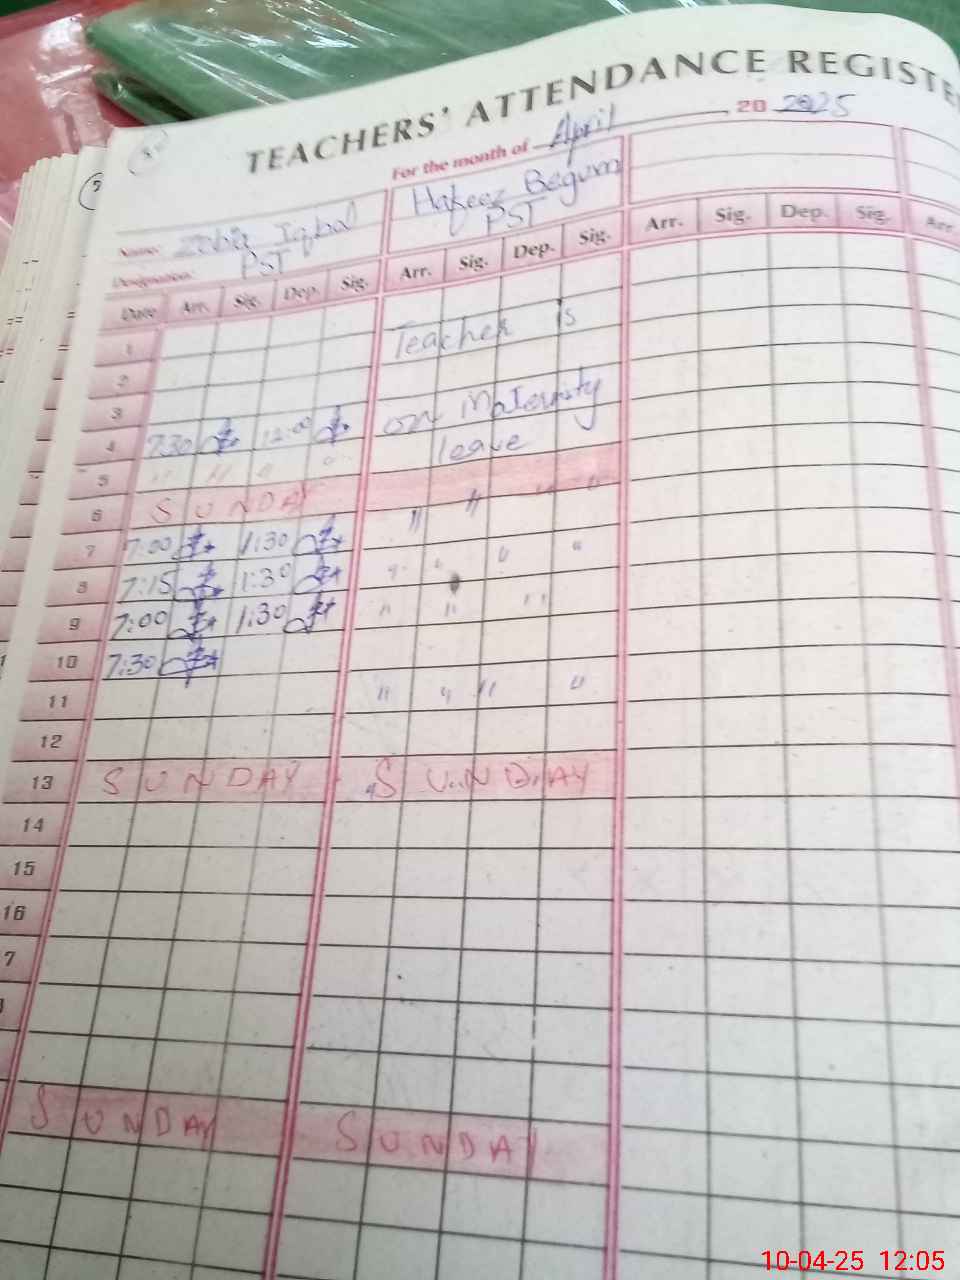 TEACHERS' ATTENDANCE REGISTE
For the month of April, 20 2025
Name: Zobia Iqbal Hafeez Begum
Designation: PST PST
Date Arr. Sig. Dep. Sig. Arr. Sig. Dep. Sig. Arr. Sig. Dep. Sig. Arr.
1 Teacher is
2
3 on maternity
4 7:30 12:00 leave
5 " " " "
6 SUNDAY
7 7:00 1:30 " " " "
8 7:15 1:30 " " " "
9 7:00 1:30 " " "
10 7:30
11 " " " "
12
13 SUNDAY SUNDAY
14
15
16
7
SUNDAY SUNDAY
10-04-25 12:05